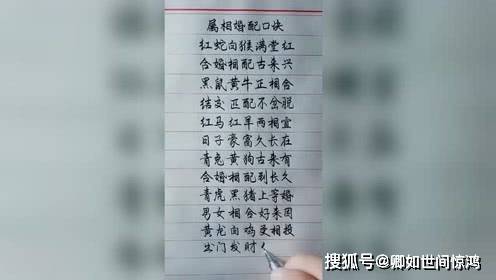 属相婚配口诀
红蛇白猴满堂红
合婚相配古来兴
黑鼠黄牛正相合
结交匹配不岔脱
红马红羊两相宜
日子豪富久长在
青兔黄狗古来有
合婚相配到长久
青虎黑猪上等婚
男女相合好来因
黄龙白鸡更相投
出门发财
搜狐号@卿如世间惊鸿